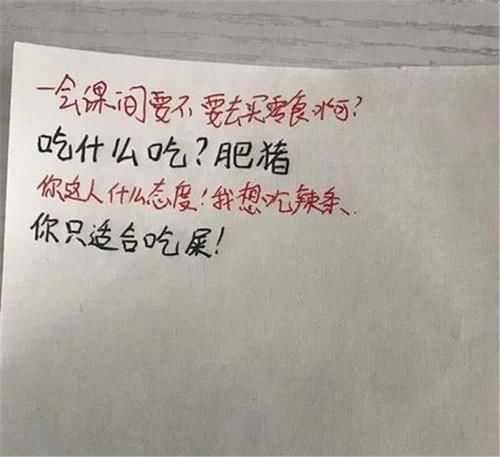 一会课间要不要去买零食啊?
吃什么吃?肥猪
你这人什么态度!我想吃辣条、
你只适合吃屎!